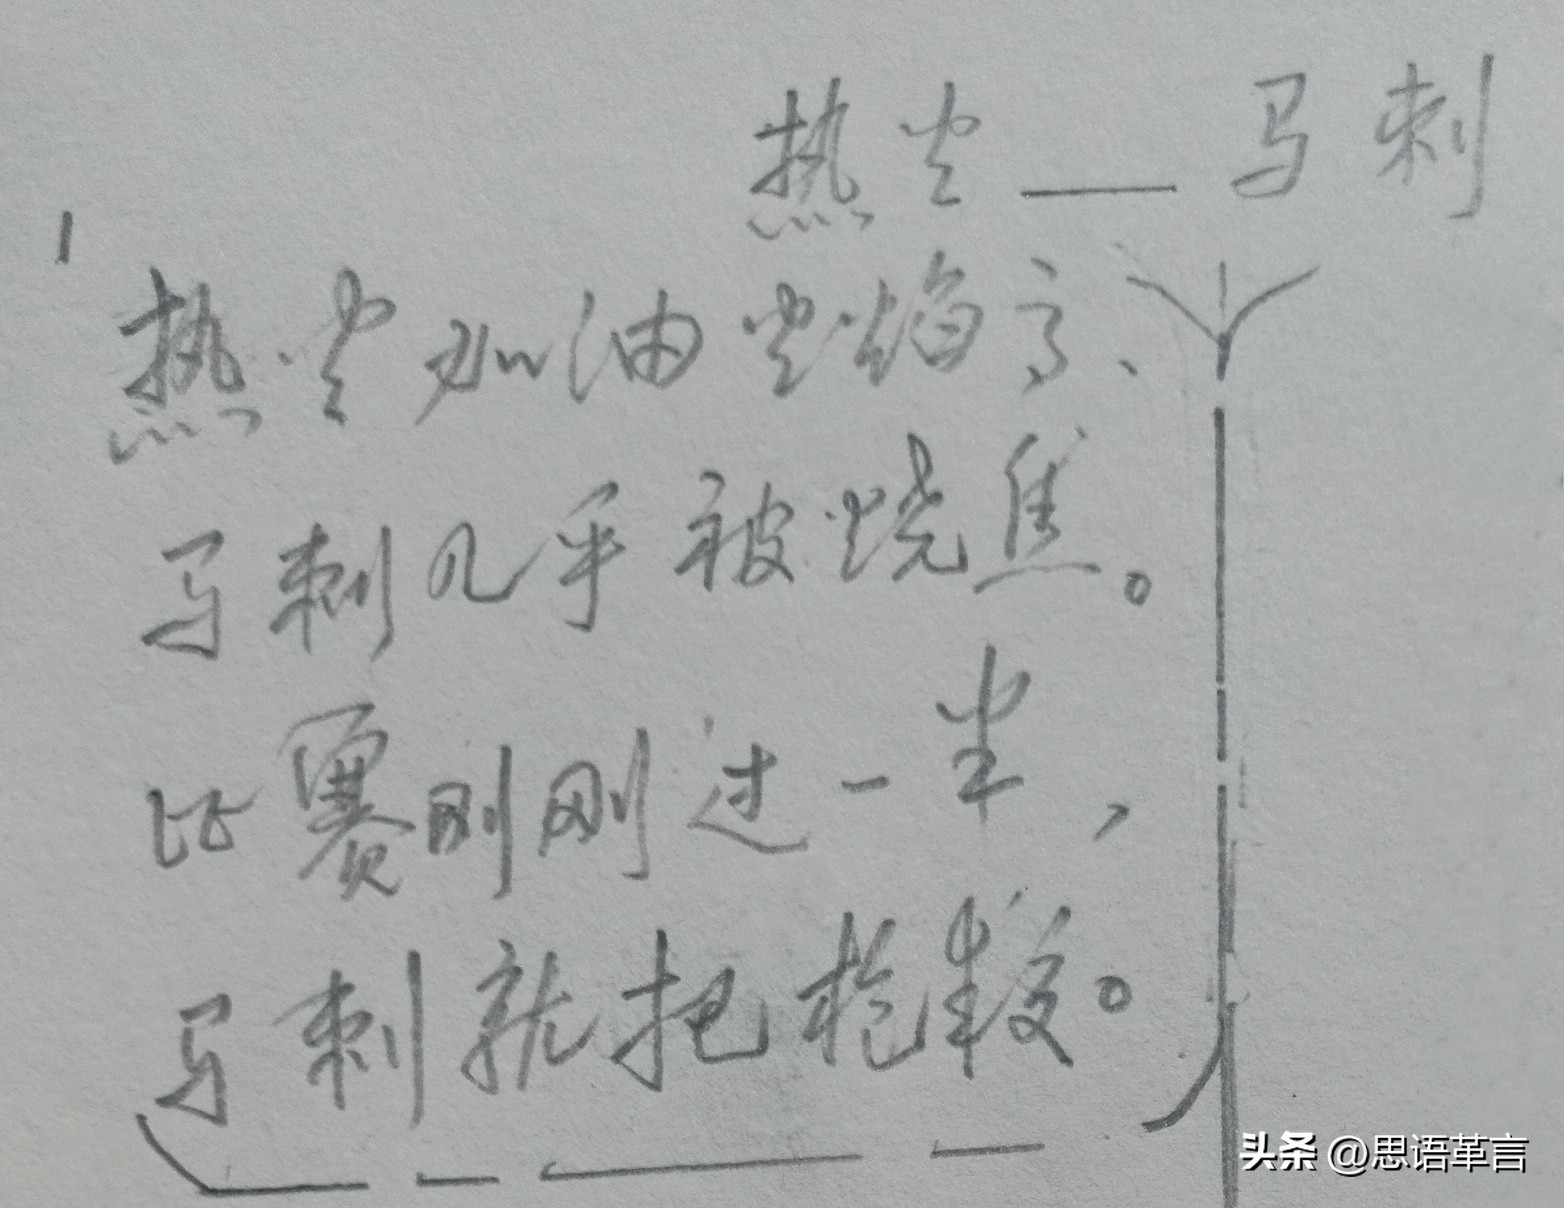 热火——马刺
1
热火加油火焰高、
马刺几乎被烧焦。
比赛刚刚过一半,
马刺就把枪缴。
头条 @思语革言